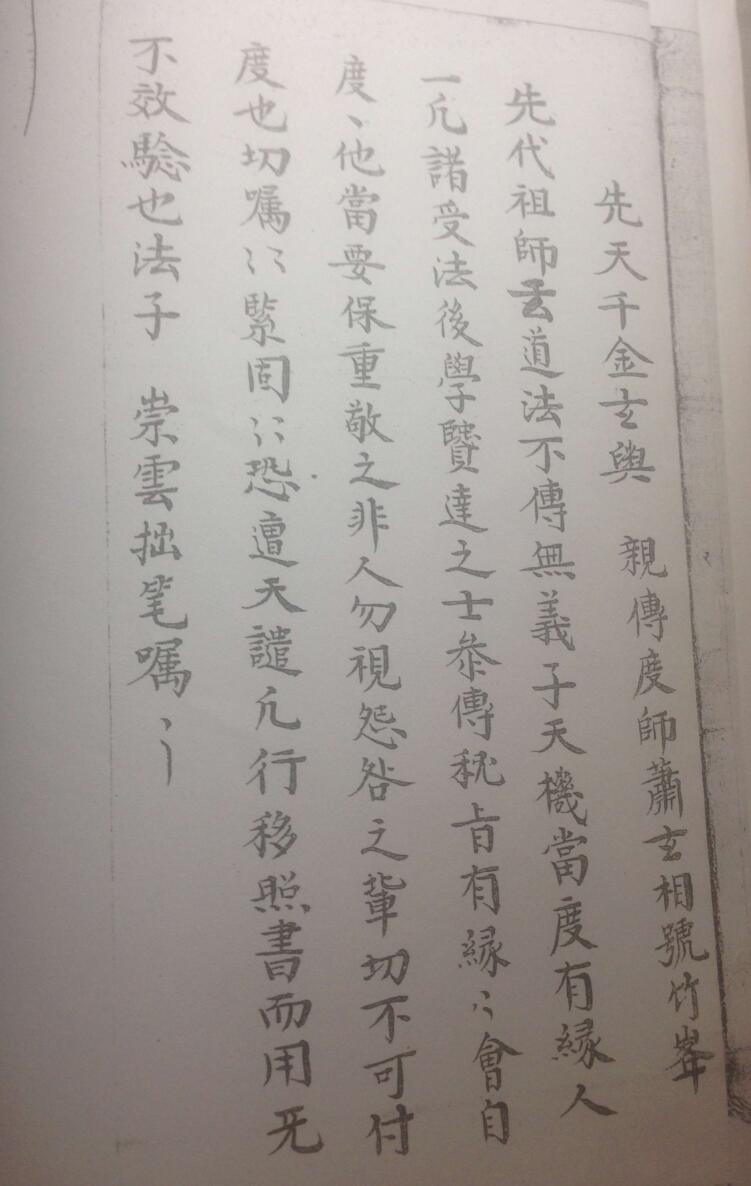 先天千金玄奥　親傳度師蕭玄相號竹峯
先代祖師云道法不傳無義子天機當度有緣人
一凢諸受法後學賢達之士叅傳秘旨有緣〻會自
度、他當要保重敬之非人勿視怨咎之輩切不可付
度也切嘱〻〻緊固〻〻恐遭天譴凢行移照書而用无
不效驗也法子　崇雲拙笔嘱、